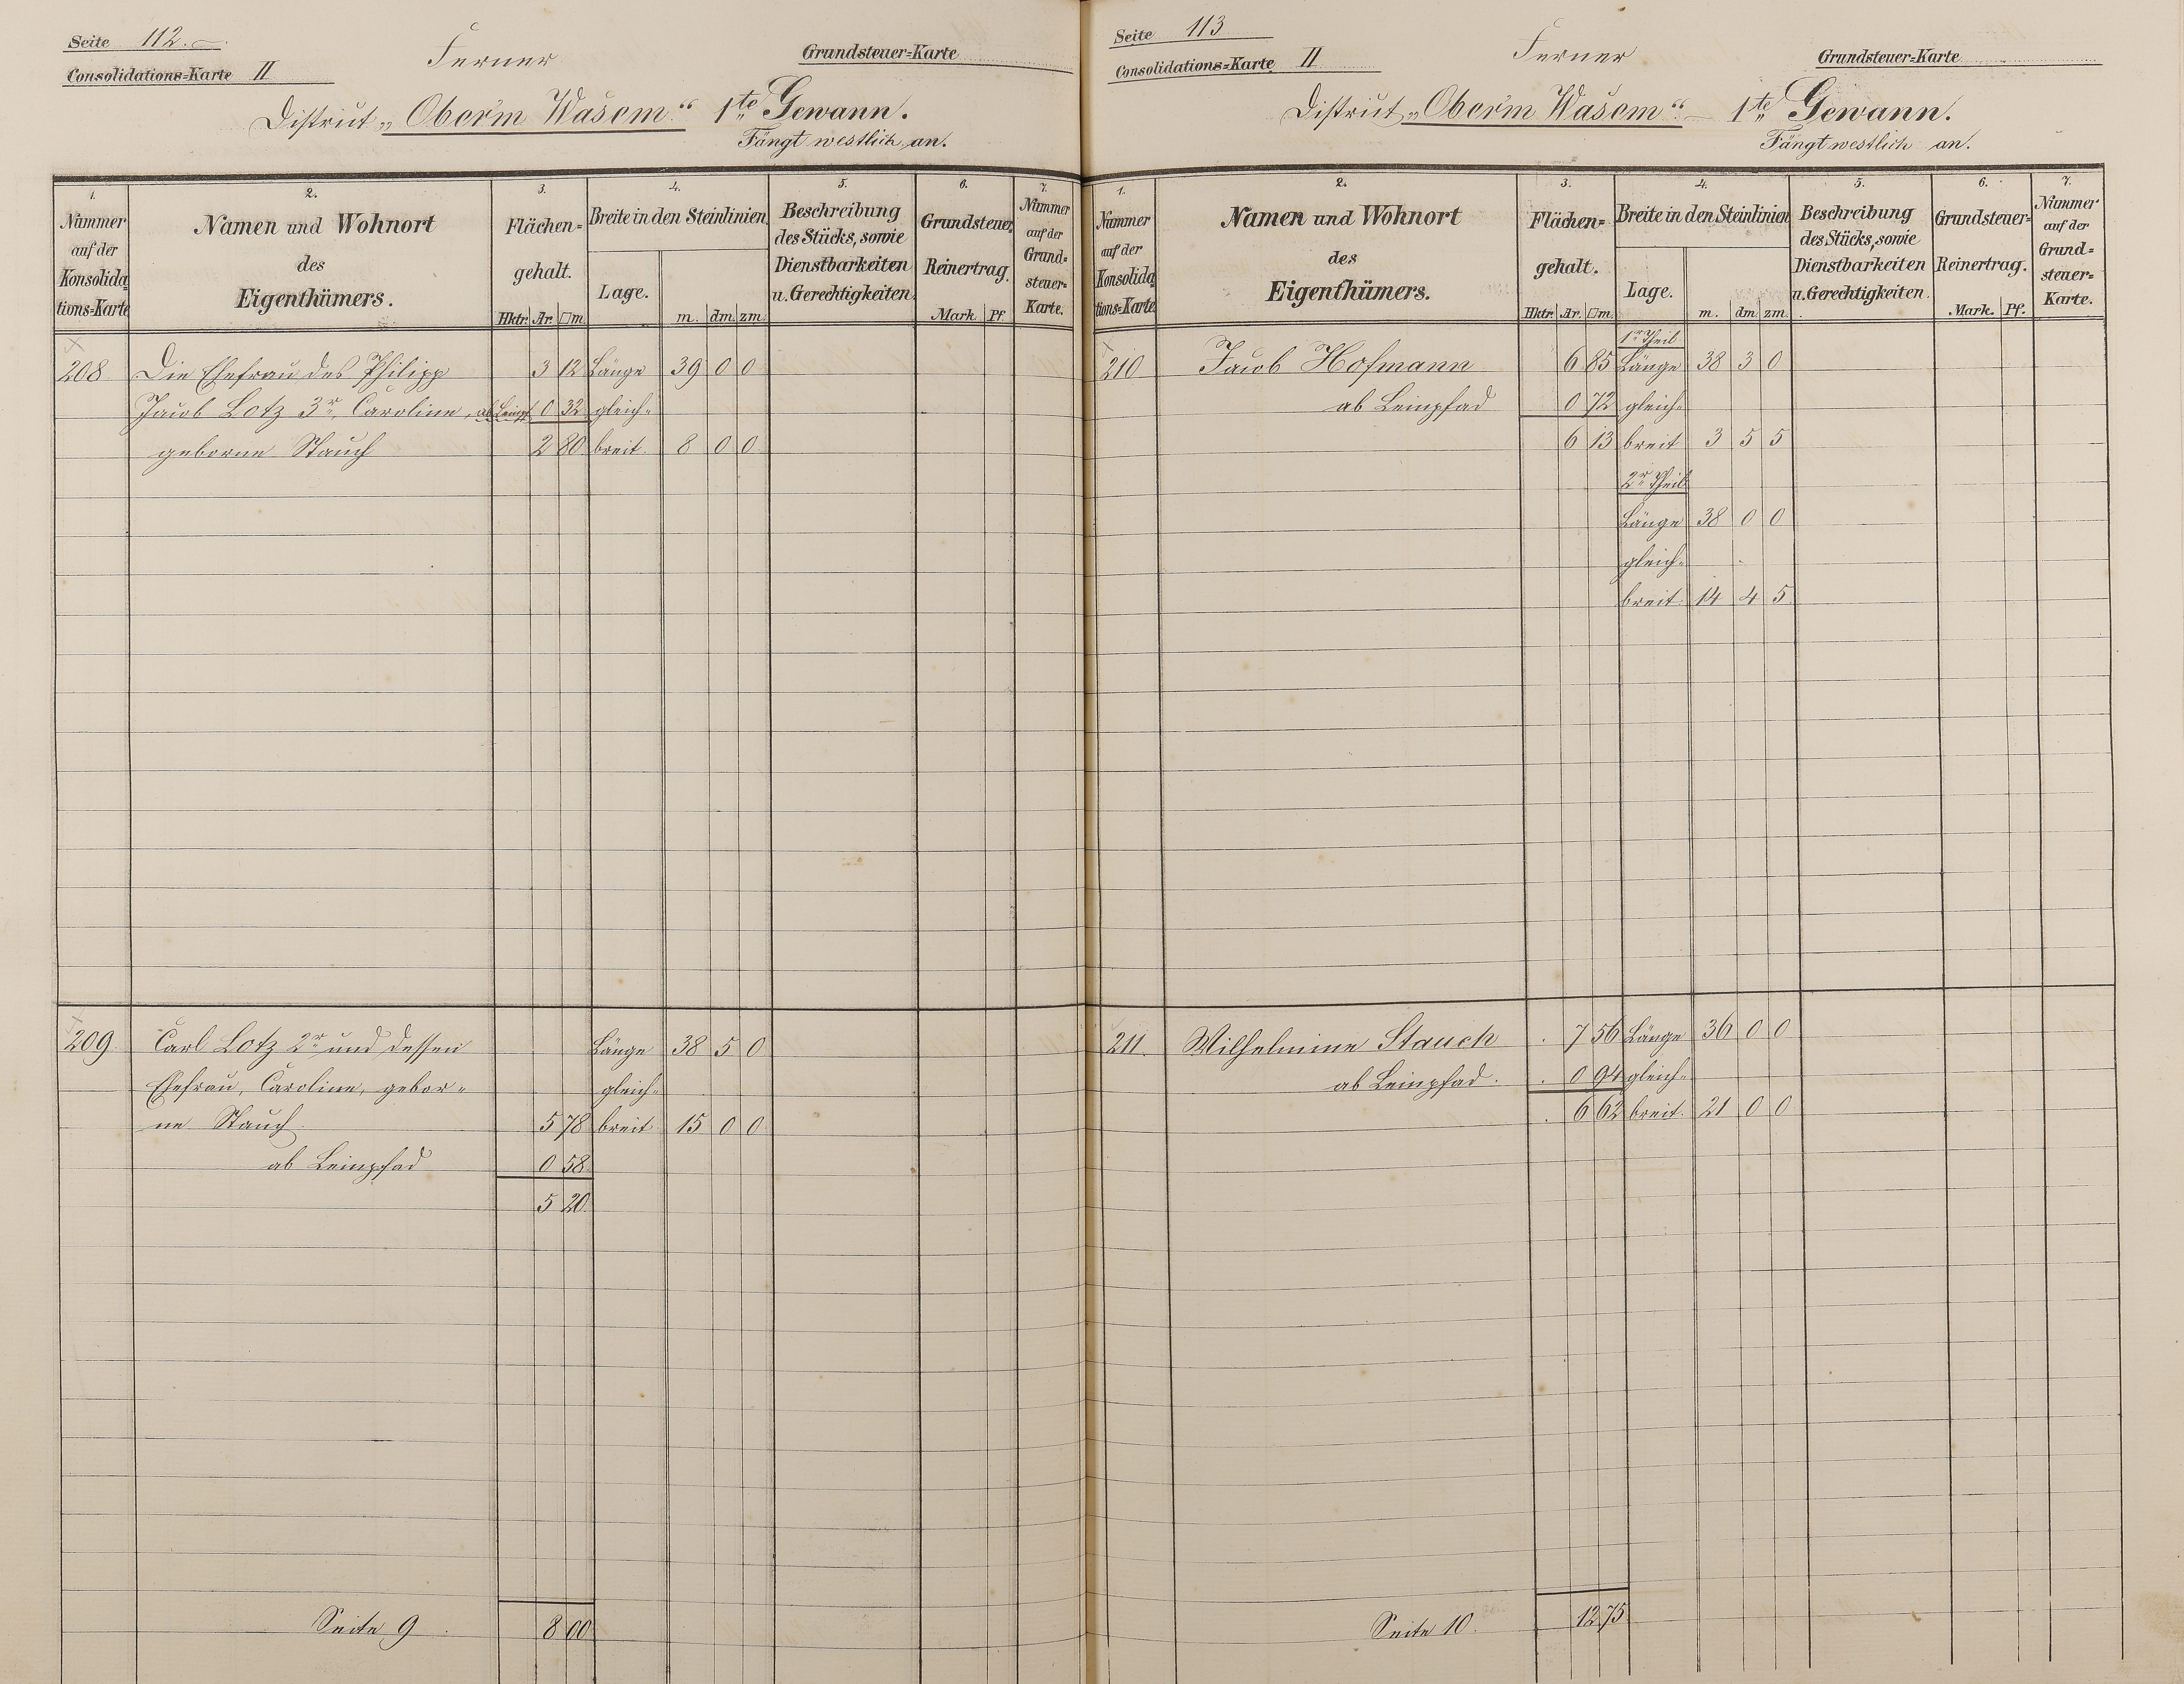 Seite 112.
Consolidations=Karte II
Ferner
Grundsteuer=Karte
District „Ober'm Wasem“ 1te Gewann.
Fängt westlich an.
1. 2. 3. 4. 5. 6. 7.
Nummer auf der Konsolida tions=Karte
Namen und Wohnort des Eigenthümers.
Flächen= gehalt.
Hktr. Ar. □m.
Breite in den Steinlinien
Lage.
m. dm. zm.
Beschreibung des Stücks, sowie Dienstbarkeiten u. Gerechtigkeiten.
Grundsteuer Reinertrag.
Mark Pf.
Nummer auf der Grund= steuer= Karte.
208 Die Ehefrau des Philipp 3 12 Länge 39 0 0
Jacob Lotz 3r, Caroline, ab Leinpf 0 32 gleich=
geborne Stauch 2 80 breit 8 0 0
209. Carl Lotz 2r und dessen Länge 38 5 0
Ehefrau, Caroline, gebor= gleich=
ne Stauch 5 78 breit 15 0 0
ab Leinpfad 0 58
5 20
Seite 9 8 00
Seite 113
Consolidations=Karte II
Ferner
Grundsteuer=Karte
District „Ober'm Wasem“ 1te Gewann.
Fängt westlich an.
1. 2. 3. 4. 5. 6. 7.
Nummer auf der Konsolida tions=Karte
Namen und Wohnort des Eigenthümers.
Flächen= gehalt.
Hktr. Ar. □m.
Breite in den Steinlinien
Lage.
m. dm zm.
Beschreibung des Stücks, sowie Dienstbarkeiten u. Gerechtigkeiten.
Grundsteuer= Reinertrag.
Mark. Pf.
Nummer auf der Grund= steuer= Karte.
1r Theil
210 Jacob Hofmann 6 85 Länge 38 3 0
ab Leinpfad 0 72 gleich=
6 13 breit 3 5 5
2r Theil
Länge 38 0 0
gleich=
breit 14 4 5
211. Wilhelmine Stauch 7 56 Länge 36 0 0
ab Leinpfad. 0 94 gleich=
6 62 breit. 21 0 0
Seite 10. 12 75